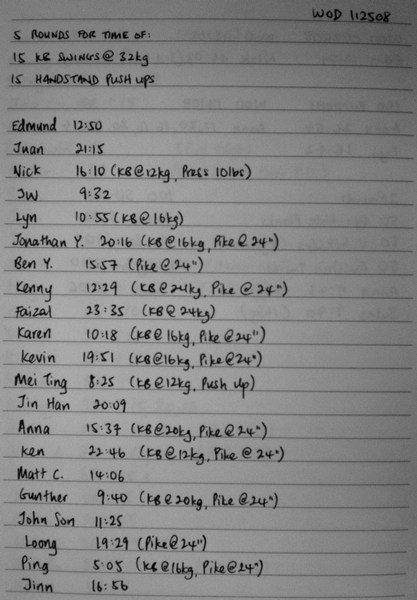 WOD 112508
5 ROUNDS FOR TIME OF:
15 KB SWINGS @ 32kg
15 HANDSTAND PUSH UPS
Edmund 12:50
Juan 21:15
Nick 16:10 (KB@12kg, Press 10lbs)
JW 9:32
Lyn 10:55 (KB@16kg)
Jonathan Y. 20:16 (KB@16kg, Pike @ 24")
Ben Y. 15:57 (Pike @ 24")
Kenny 12:29 (KB@24kg, Pike @ 24")
Faizal 23:35 (KB@24kg)
Karen 10:18 (KB@16kg, Pike@24")
Kevin 19:51 (KB@16kg, Pike@24")
Mei Ting 8:25 (KB@12kg, Push Up)
Jin Han 20:09
Anna 15:37 (KB@20kg, Pike@24")
Ken 22:46 (KB@12kg, Pike @ 24")
Matt C. 14:06
Gunther 9:40 (KB@20kg, Pike @24")
John Son 11:25
Loong 19:29 (Pike@24")
Ping 5:05 (KB@16kg, Pike@24")
Jinn 16:56